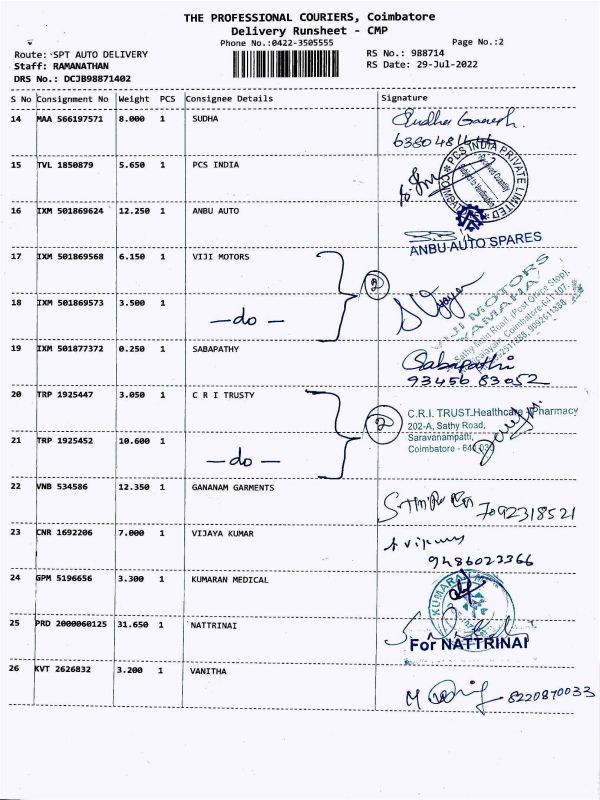 THE PROFESSIONAL COURIERS, Coimbatore
Delivery Runsheet - CMP
Phone No.:0422-3505555 Page No.:2
Route: SPT AUTO DELIVERY RS No.: 988714
Staff: RAMANATHAN RS Date: 29-Jul-2022
DRS No.: DCJB98871402
S No Consignment No Weight PCS Consignee Details Signature
14 MAA 566197571 8.000 1 SUDHA Sudha Ganesh.
15 TVL 1850879 5.650 1 PCS INDIA PCS INDIA PRIVATE LIMITED COIMBATORE
16 IXM 501869624 12.250 1 ANBU AUTO
ANBU AUTO SPARES
17 IXM 501869568 6.150 1 VIJI MOTORS
2
18 IXM 501869573 3.500 1 —do— VIJI MOTORS
YAMAHA
Sathy Main Road, (Post Office Stop),
19 IXM 501877372 0.250 1 SABAPATHY Sabapathi
93456 83052
20 TRP 1925447 3.050 1 C R I TRUSTY C.R.I. TRUST.Healthcare Pharmacy
2 202-A, Sathy Road,
21 TRP 1925452 10.600 1 —do— Saravanampatti,
Coimbatore - 641 035
22 VNB 534586 12.350 1 GANANAM GARMENTS 7092318521
23 CNR 1692206 7.000 1 VIJAYA KUMAR
9486023366
24 GPM 5196656 3.300 1 KUMARAN MEDICAL KUMARAN
25 PRD 2000060125 31.650 1 NATTRINAI
For NATTRINAI
26 KVT 2626832 3.200 1 VANITHA 8220870033